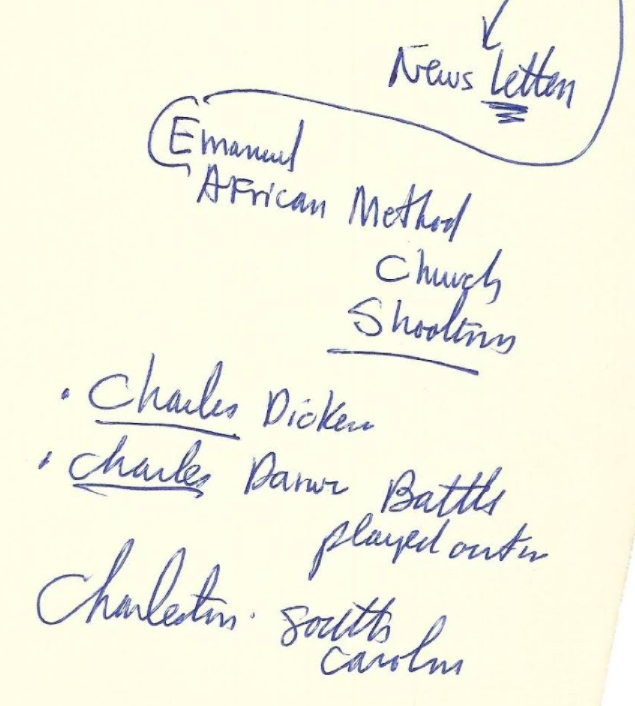 News Letter
Emanuel
African Method
Church
Shootings
• Charles Dicken
• Charles Darwi Battle
played out in
Charleston. South
Carolin